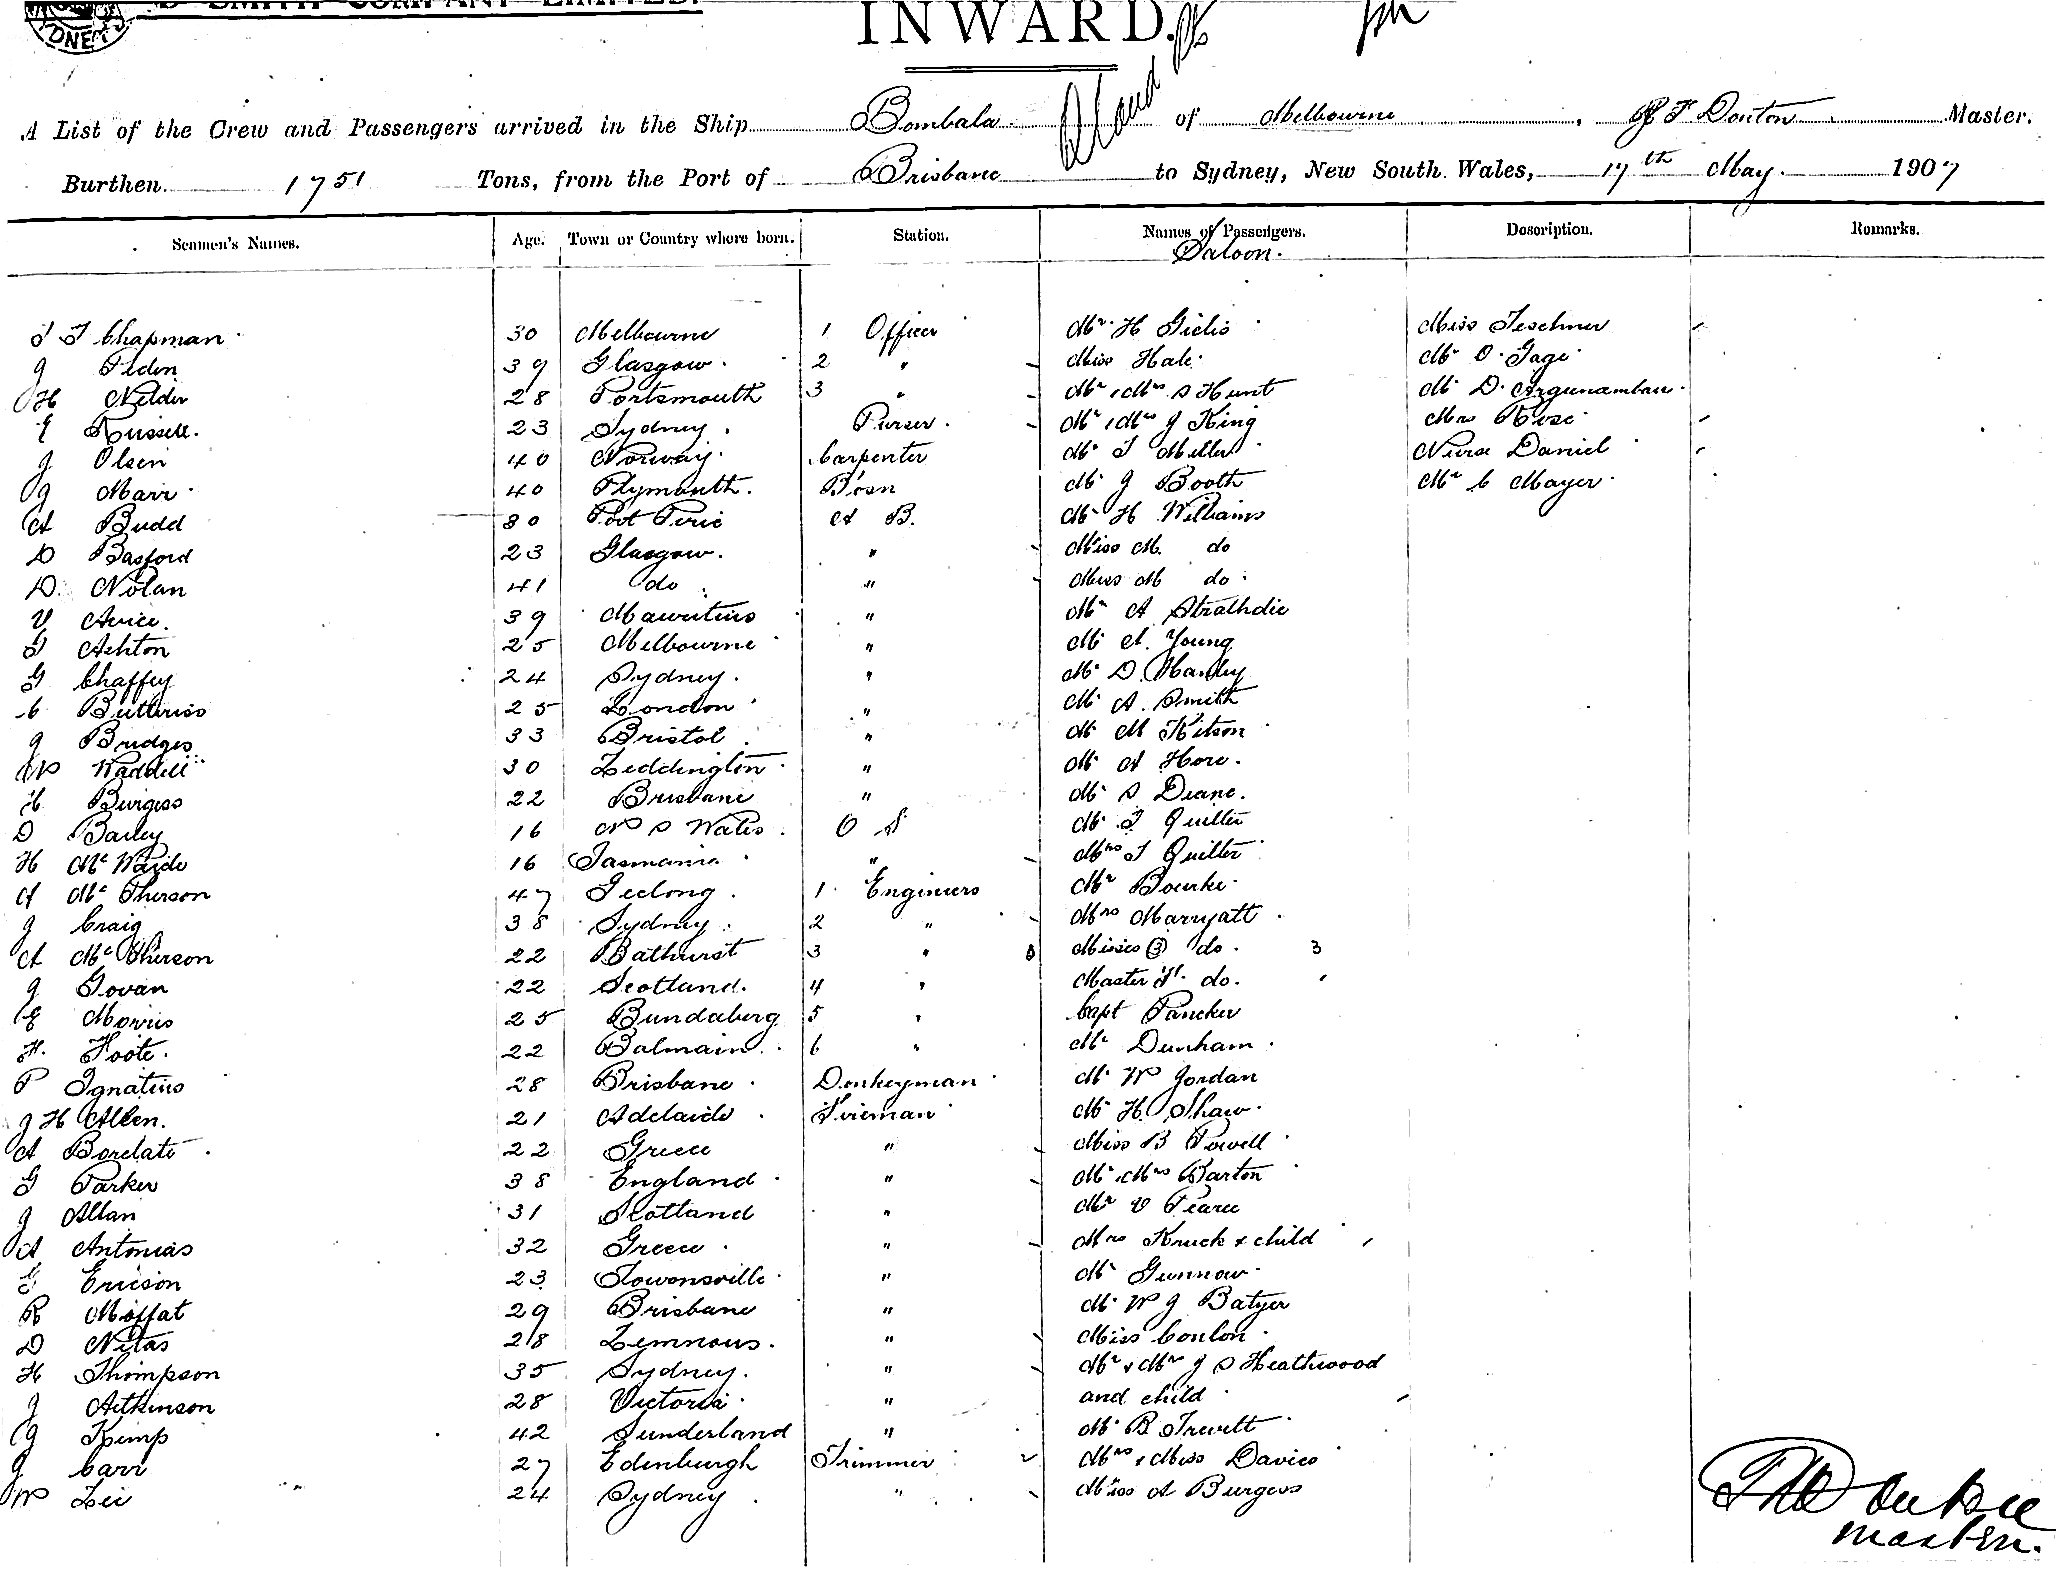 D SMITH COMPANY LIMITED.
INWARD.
A List of the Crew and Passengers arrived in the Ship Bombala of Melbourne, Master.
Burthen 1751 Tons, from the Port of Brisbane to Sydney, New South Wales, 17th May. 1907
Seamen's Names. Age. Town or Country where born. Station. Names of Passengers. Description. Remarks.
Saloon.
Chapman 30 Melbourne 1 Officer Mr. H Gielis Miss Teschner
J 39 Glasgow. 2 " Miss Hale. Mr O. Gage
H Nelder 28 Portsmouth 3 " Mr & Mrs S Hunt Mr D. Argunambau.
E Russell. 23 Sydney. Purser. Mr & Mrs J King Mrs Rose
J Olsen 40 Norway. Carpenter Mr T Miller Nurse Daniel
J Marr 40 Plymouth. Bosn Mr J Booth Mr C Mayer.
A Budd 30 Port Pirie A B. Mr H Williams
D Basford 23 Glasgow. " Miss M. do
D. Nolan 41 do " Miss M do.
V Avice. 39 Mauritius " Mr A Strathdie
Ashton 25 Melbourne " Mr A. Young
G Chaffey 24 Sydney. " Mr D. Hanley
C Butteriss 25 London " Mr A. Smith
J Bridges 33 Bristol " Mr M Kitson
W Waddell 30 Leddington " Mr A Hore.
H Burgess 22 Brisbane " Mr S Deane.
D Bailey 16 N S Wales. O S Mr T Quilter
H Mc Wade 16 Tasmania " Mrs T Quilter
A Mc Pherson 47 Geelong. 1 Engineers Mr Bourke
J Craig 38 Sydney. 2 " Mrs Marryatt
A Mc Pherson 22 Bathurst 3 " 3 Misses (3) do. 3
J Govan 22 Scotland. 4 " Master do.
E Morris 25 Bundaberg 5 " Capt Pancker
F. Foote. 22 Balmain. 6 " Mr Dunham.
P Ignatius 28 Brisbane. Donkeyman Mr W Jordan
J H Allen. 21 Adelaide. Fireman Mr H. Shaw.
A Bordato 22 Greece " Miss B Powell
G Parker 38 England " Mr & Mrs Barton
J Allan 31 Scotland " Mr V Pearce
A Antonias 32 Greece " Mrs Kruck & child
Ericson 23 Townsville " Mr Gunnow
R Moffat 29 Brisbane " Mr W J Batyer
D Nitas 28 Lemnous. " Miss Conlon
H Thompson 35 Sydney. " Mr & Mrs J S Heathwood
J Aitkinson 28 Victoria " and child
J Kemp 42 Sunderland " Mr B Trevitt
J Carr 27 Edenburgh Trimmer Mrs & Miss Davies
W Lee 24 Sydney " Miss A Burgess
Master.